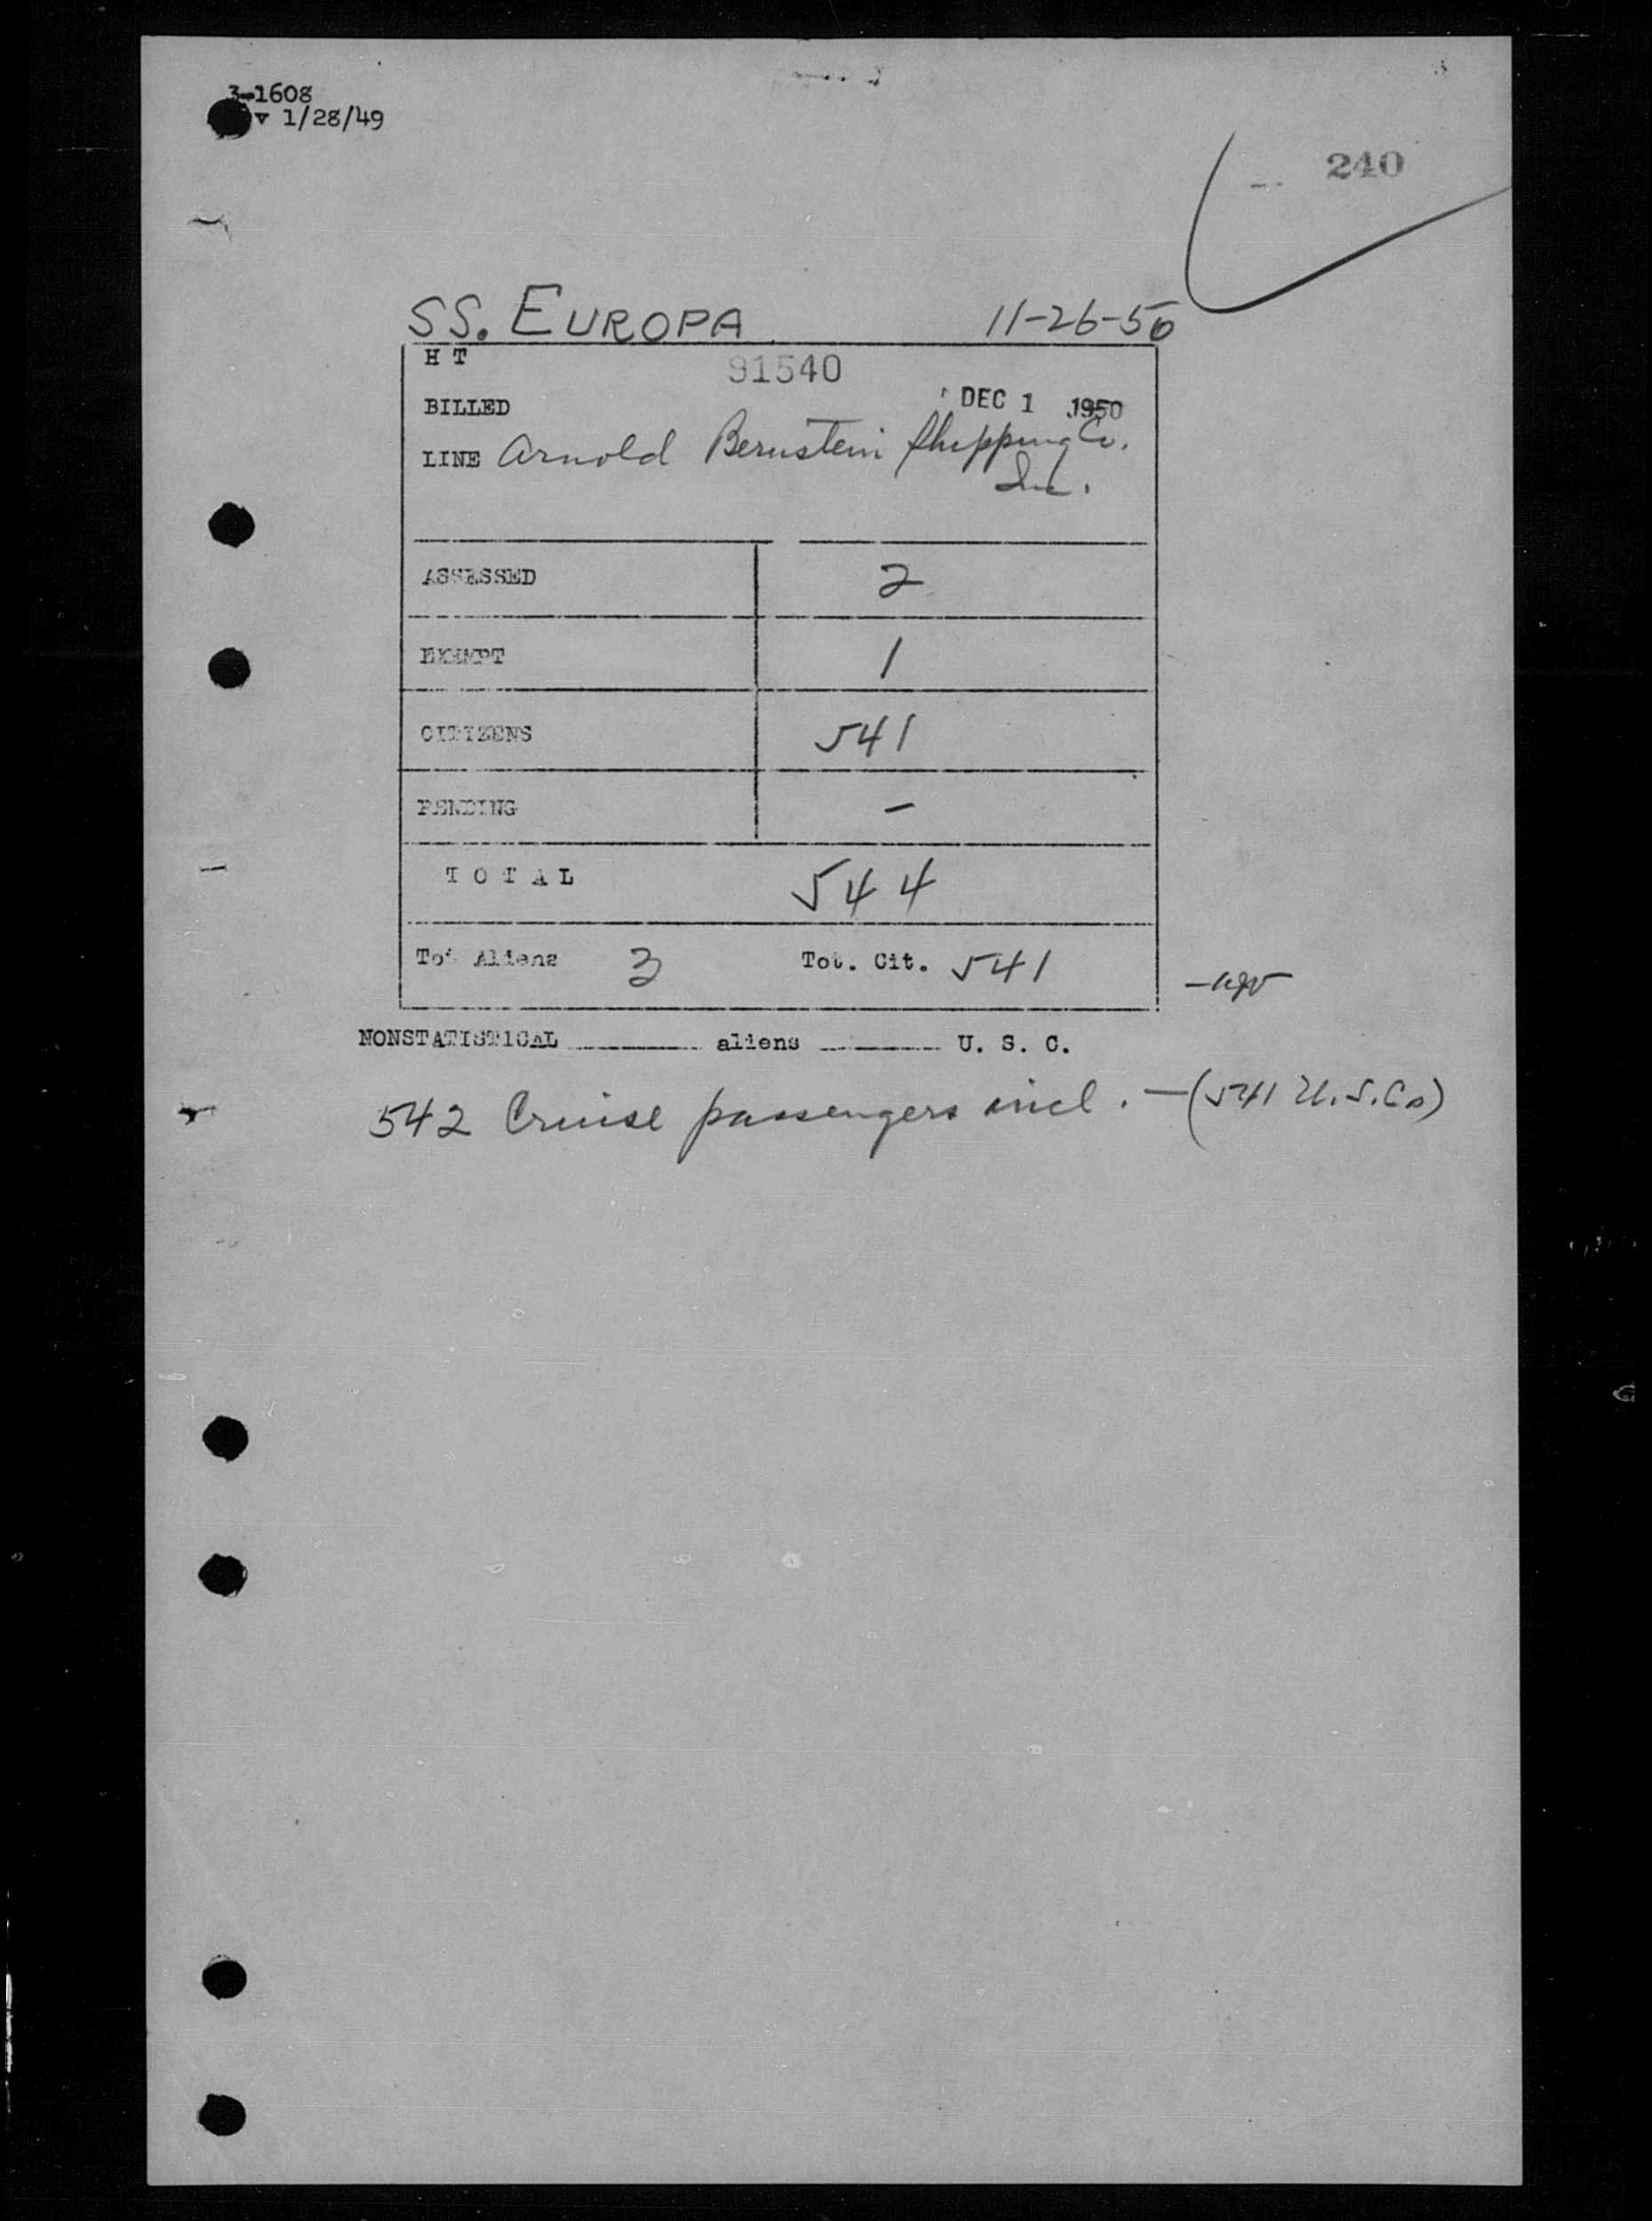 3-1608
v 1/28/49
240
SS. EUROPA 11-26-50
H T 91540
BILLED DEC 1 1950
LINE Arnold Bernstein Shipping Co.
Inc.
ASSESSED 2
EXEMPT 1
CITIZENS 541
PENDING -
TOTAL 544
Tot Aliens 3 Tot. Cit. 541
NONSTATISTICAL ______ aliens ______ U. S. C.
542 Cruise passengers incl. - (541 U.S.Cs)